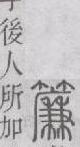 簾
後人所加